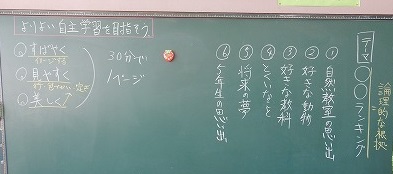 よりよい自主学習を目指そう
① すばやく
イメージする
② 見やすく
③ 美しく
30分で
1ページ
テーマ
〇〇ランキング
論理的な根拠
① 自然教室の思い出
② 好きな動物
③ 好きな教科
④ とくいなこと
⑤ 将来の夢
⑥ 5年生の思い出